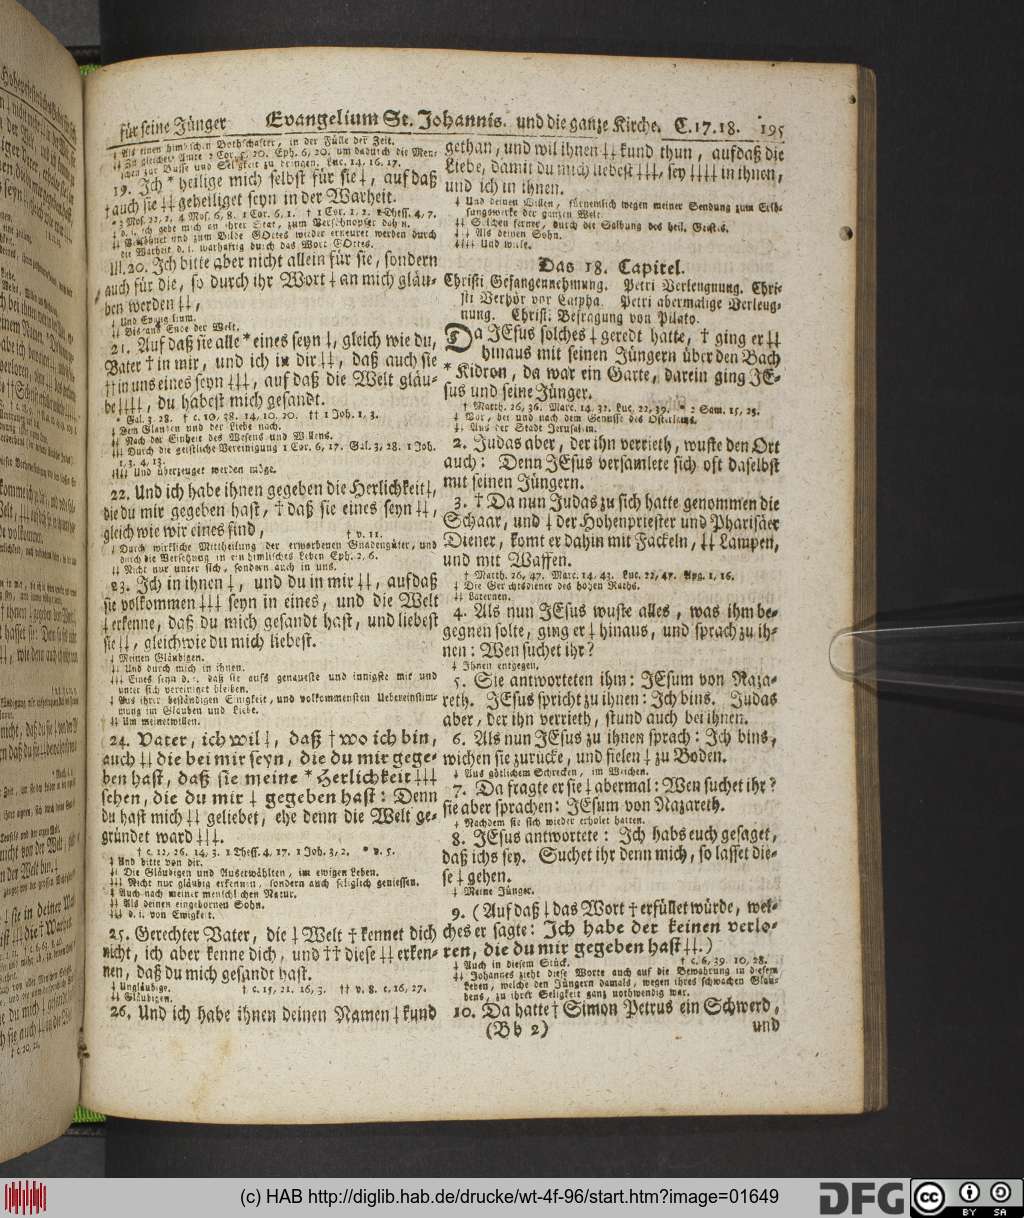 für seine Jünger Evangelium St. Johannis. und die ganze Kirche. C.17.18. 195
‡ Als einen himlischen Bothschafter, in der Fülle der Zeit.
‡‡ Zu gleichem Amte 2 Cor. 5, 20. Eph. 6, 20. um dadurch die Men-
schen zur Busse und Seligkeit zu bringen, Luc. 14, 16. 17.
19. Ich * heilige mich selbst für sie ‡, auf daß
† auch sie ‡‡ geheiliget seyn in der Warheit.
‡ d. i. ich gebe mich an ihrer Stat, zum Versöhnopfer dahin.
‡‡ Versöhnet und zum Bilde GOttes wieder erneuret werden durch
die Warheit d. i. warhaftig durch das Wort GOttes.
III. 20. Ich bitte aber nicht allein für sie, sondern
auch für die, so durch ihr Wort ‡ an mich gläu-
ben werden ‡‡,
‡ Und Evangelium.
‡‡ Bis ans Ende der Welt.
21. Auf daß sie alle * eines seyn ‡, gleich wie du,
Vater † in mir, und ich in dir ‡‡, daß auch sie
†† in uns eines seyn ‡‡‡, auf daß die Welt gläu-
be ‡‡‡‡, du habest mich gesandt.
* Gal. 3. 28. † c. 10, 38. 14, 10. 20. †† 1 Joh. 1, 3.
‡ Dem Glauben und der Liebe nach.
‡‡ Nach der Einheit des Wesens und Willens.
‡‡‡ Durch die geistliche Vereinigung 1 Cor. 6, 17. Gal. 3, 28. 1 Joh.
1, 3. 4, 13.
‡‡‡‡ Und überzeuget werden möge.
22. Und ich habe ihnen gegeben die Herlichkeit ‡,
die du mir gegeben hast, † daß sie eines seyn ‡‡,
gleich wie wir eines sind, † v. 11.
‡ Durch wirkliche Mittheilung der erworbenen Gnadengüter, und
durch die Versetzung in ein himlisches Leben Eph. 2, 6.
‡‡ Nicht nur unter sich, sondern auch in uns.
23. Ich in ihnen ‡, und du in mir ‡‡, auf daß
sie volkommen ‡‡‡ seyn in eines, und die Welt
‡ erkenne, daß du mich gesandt hast, und liebest
sie ‡‡, gleich wie du mich liebest.
‡ Meinen Gläubigen.
‡‡ Und durch mich in ihnen.
‡‡‡ Eines seyn d. i. daß sie aufs genaueste und innigste mit und
unter sich vereiniget bleiben.
‡ Aus ihrer beständigen Einigkeit, und volkommensten Uebereinstim-
mung im Glauben und Liebe.
‡‡ Um meinetwillen.
24. Vater, ich wil ‡, daß † wo ich bin,
auch ‡‡ die bei mir seyn, die du mir gege-
ben hast, daß sie meine * Herlichkeit ‡‡‡
sehen, die du mir ‡ gegeben hast: Denn
du hast mich ‡‡ geliebet, ehe denn die Welt ge-
gründet ward ‡‡‡.
† c. 12, 26. 14, 3. 1 Thess. 4, 17. 1 Joh. 3, 2. * v. 5.
‡ Und bitte von dir.
‡‡ Die Gläubigen und Auserwählten, im ewigen Leben.
‡‡‡ Nicht nur gläubig erkennen, sondern auch seliglich geniessen.
‡ Auch nach meiner menschlichen Natur.
‡‡ Als deinen eingebornen Sohn.
‡‡‡ d. i. von Ewigkeit.
25. Gerechter Vater, die ‡ Welt † kennet dich
nicht, ich aber kenne dich, und †† diese ‡‡ erken-
nen, daß du mich gesandt hast.
‡ Ungläubige. † c. 15, 21. 16, 3. †† v. 8. c. 16, 27.
‡‡ Gläubigen.
26. Und ich habe ihnen deinen Namen ‡ kund
gethan, und wil ihnen ‡‡ kund thun, auf daß die
Liebe, damit du mich liebest ‡‡‡, sey ‡‡‡‡ in ihnen,
und ich in ihnen.
‡ Und deinen Willen, fürnemlich wegen meiner Sendung zum Erlö-
sungswerke der ganzen Welt.
‡‡ Solchen ferner, durch die Salbung des heil. Geistes.
‡‡‡ Als deinen Sohn.
‡‡‡‡ Und würke.
Das 18. Capitel.
Christi Gefangennehmung. Petri Verleugnung. Chri-
sti Verhör vor Caipha. Petri abermalige Verleug-
nung. Christi Befragung von Pilato.
Da JEsus solches ‡ geredt hatte, † ging er ‡‡
hinaus mit seinen Jüngern über den Bach
* Kidron, da war ein Garte, darein ging JE-
sus und seine Jünger.
† Matth. 26, 36. Marc. 14, 32. Luc. 22, 39. * 2 Sam. 15, 23.
‡ Vor, bei und nach dem Genusse des Osterlams.
‡‡ Aus der Stadt Jerusalem.
2. Judas aber, der ihn verrieth, wuste den Ort
auch: Denn JEsus versamlete sich oft daselbst
mit seinen Jüngern.
3. † Da nun Judas zu sich hatte genommen die
Schaar, und ‡ der Hohenpriester und Pharisäer
Diener, komt er dahin mit Fackeln, ‡‡ Lampen,
und mit Waffen.
† Matth. 26, 47. Marc. 14, 43. Luc. 22, 47. Apg. 1, 16.
‡ Die Gerichtsdiener des hohen Raths.
‡‡ Laternen.
4. Als nun JEsus wuste alles, was ihm be-
gegnen solte, ging er ‡ hinaus, und sprach zu ih-
nen: Wen suchet ihr?
‡ Ihnen entgegen.
5. Sie antworteten ihm: JEsum von Naza-
reth. JEsus spricht zu ihnen: Ich bins. Judas
aber, der ihn verrieth, stund auch bei ihnen.
6. Als nun JEsus zu ihnen sprach: Ich bins,
wichen sie zurücke, und fielen ‡ zu Boden.
‡ Aus götlichem Schrecken, im Weichen.
7. Da fragte er sie ‡ abermal: Wen suchet ihr?
sie aber sprachen: JEsum von Nazareth.
‡ Nachdem sie sich wieder erholet hatten.
8. JEsus antwortete: Ich habs euch gesaget,
daß ichs sey. Suchet ihr denn mich, so lasset die-
se ‡ gehen.
‡ Meine Jünger.
9. (Auf daß ‡ das Wort † erfüllet würde, wel-
ches er sagte: Ich habe der keinen verlo-
ren, die du mir gegeben hast ‡‡.)
‡ Auch in diesem Stück. † c. 6, 39. 10, 28.
‡‡ Johannes zieht diese Worte auch auf die Bewahrung in diesem
Leben, welche den Jüngern damals, wegen ihres schwachen Glau-
bens, zu ihrer Seligkeit ganz nothwendig war.
10. Da hatte † Simon Petrus ein Schwerd,
(Bb 2) und
(c) HAB http://diglib.hab.de/drucke/wt-4f-96/start.htm?image=01649
DFG
cc BY SA